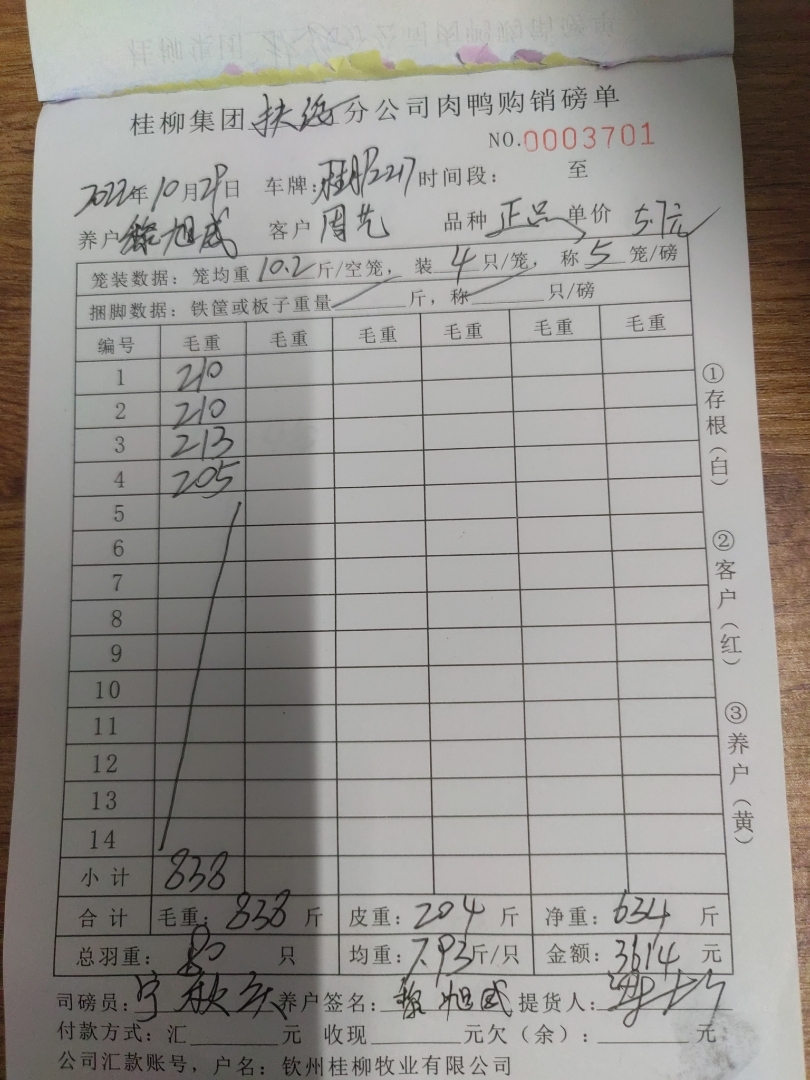 桂柳集团扶绥分公司肉鸭购销磅单
NO.0003701
2022年10月29日 车牌: 时间段: 至
养户 徐旭威 客户 周艺 品种 正品 单价 5.7元
笼装数据: 笼均重 10.2 斤/空笼, 装 4 只/笼, 称 5 笼/磅
捆脚数据: 铁筐或板子重量 斤, 称 只/磅
编号 毛重 毛重 毛重 毛重 毛重 毛重
1 210
2 210
3 213
4 205
5
6
7
8
9
10
11
12
13
14
小计 838
合计 毛重: 838 斤 皮重: 204 斤 净重: 634 斤
总羽重: 80 只 均重: 7.93斤/只 金额: 3614 元
司磅员: 养户签名: 徐旭威 提货人:
付款方式: 汇 元 收现 元欠(余): 元
公司汇款账号, 户名: 钦州桂柳牧业有限公司
①存根(白)
②客户(红)
③养户(黄)